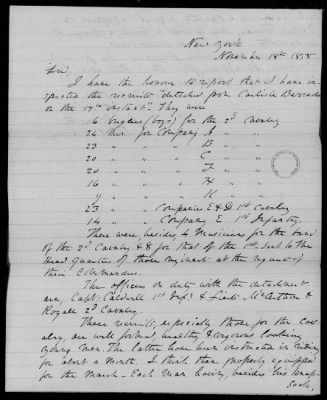 New York
November 18th 1858
Sir,
I have the honour to report that I have in-
spected the recruits detached from Carlisle Barracks
on the 17th instant. They were
6 buglers (boys) for the 2d Cavalry
26 men for Company A " "
23 " " " B " "
20 " " " C " "
20 " " " F " "
16 " " " H " "
9 " " " K " "
23 " " Companies E & D 1st Cavalry
14 " " Company E 1st Infantry.
There were besides 4 Musicians for the band
of the 2d Cavalry & 8 for that of the 1st Inf. to the
Head quarters of those regiments at the request of
their Commanders.
The officers on duty with the detachment
are, Capt. Caldwell 1st Inf. & Lieuts McArthur &
Royall 2d Cavalry.
These recruits, especially those for the Cav-
alry, are well formed, healthy & vigorous looking
young men. The latter have been instructed in riding
for about a month. I think them properly equipped
for the march. Each man having, besides his knap-
sack,